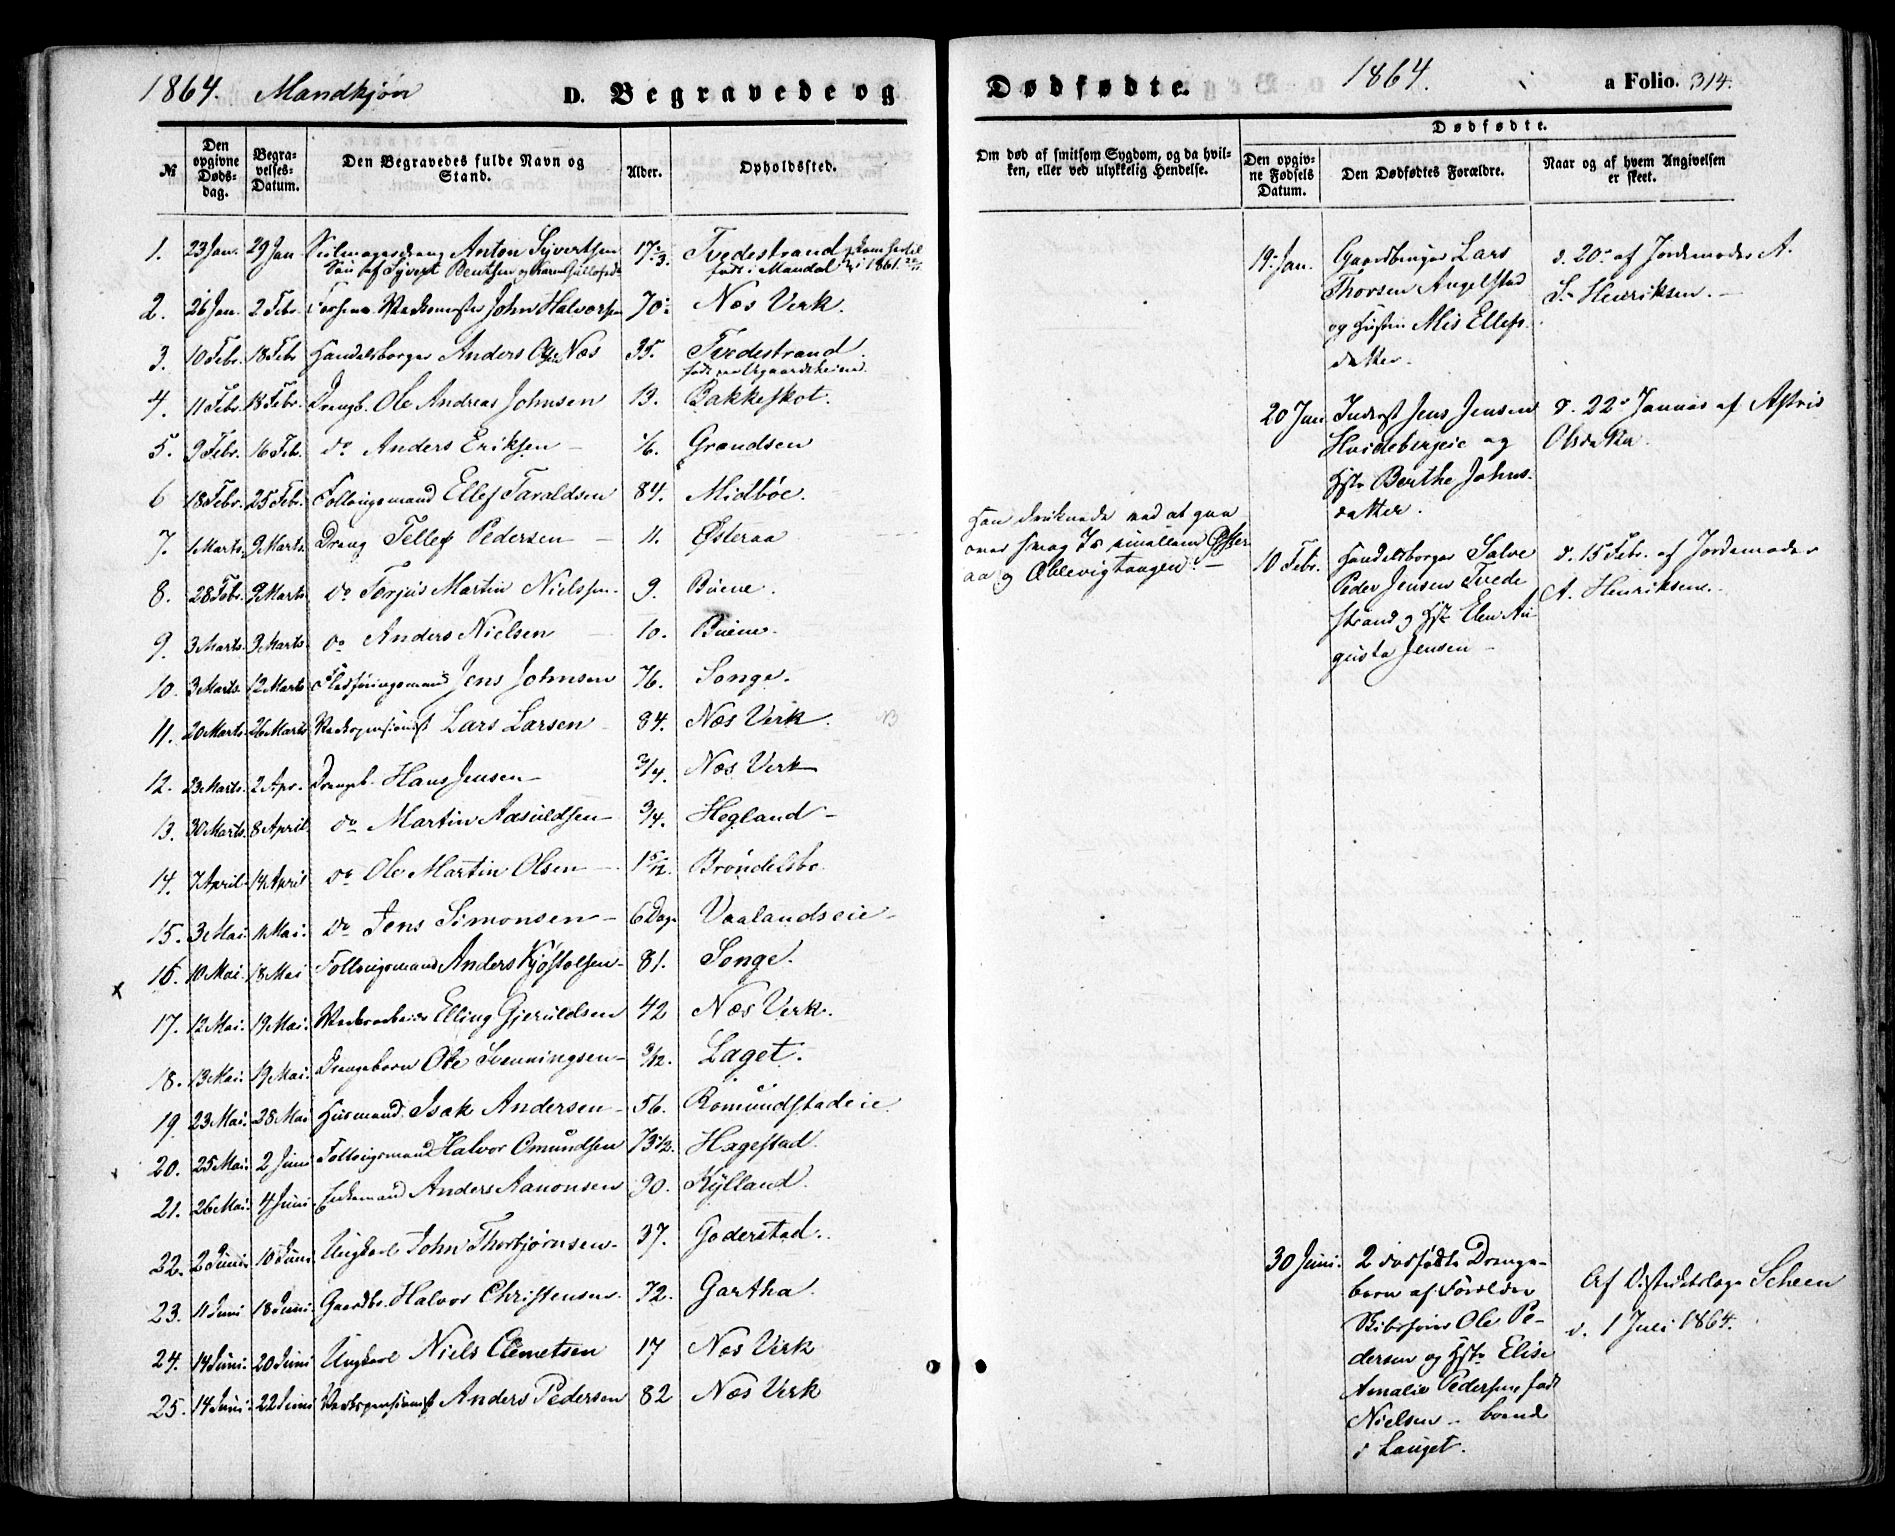 1864. Mandkjøn D. Begravede og
№ Den opgivne Døds-dag. Begra-velses-Datum. Den Begravedes fulde Navn og Stand. Alder. Opholdssted.
1. 23 Jan. 29 Jan Anton Syvertsen 17 Tvedestrand
Søn af Syvert Bentsen og født i Mandal i 1861
2. 26 Jan. 2 Febr. John Halvorsen 70 Næs Verk.
3. 10 Febr. 18 Febr Handelsborger Anders Olsen Næs 35. Tvedestrand
4. 11 Febr. 18 Febr. Drengb. Ole Andreas Johnsen 13. Bakkeskot.
5. 9 Febr. 16 Feb. do Anders Eriksen 1/6. Grandsen
6 18 Febr. 25 Febr. Follougsmand Ellef Taraldsen 84. Midbøe.
7. 1 Marts. 9 Marts. Dreng Tellef Pedersen 11. Østeraa
8. 28 Febr. 9 Marts do Torjus Martin Nielssen 9. Buene.
9. 3 Marts. 9 Marts. do Anders Nielsen 10. Buene.
10. 3 Marts. 12 Marts Fladføringsmand Jens Johnsen 76. Songe.
11. 20 Marts. 26 Marts Verkspensionist Lars Larsen 84. Næs Verk.
12. 23 Marts. 2 Apr. Drengb. Hans Jensen 3/4. Næs Verk
13. 30 Marts. 8 April. do Martin Aasuldsen 3/4. Hegland
14. 7 April. 14 April do Ole Martin Olsen 1 5/12. Brøndelsbo.
15. 3 Mai. 11 Mai. do Jens Simonsen 6 Dage Vaalandseie
16. 10 Mai. 18 Mai Follougsmand Anders Kjøstolsen 81. Songe.
17. 12 Mai. 19 Mai. Verksarbeider Elling Gjeruldsen 42 Næs Verk.
18. 13 Mai. 19 Mai. Drengebarn Ole Svenningsen 3/12. Laget.
19. 23 Mai. 28 Mai Husmand. Isak Andersen 56. Romundstadeie.
20. 25 Mai. 2 Juni Follougsmand Halvor Omundsen 73 1/2. Hagestad.
21. 26 Mai. 4 Juni Enkemand Anders Aanonsen 90. Kylland.
22. 2 Juni 10 Juni Ungkarl John Thorbjørnsen 37. Goderstad.
23. 11 Juni 18 Juni. Gaardbr. Halvor Christensen 72. Gartha.
24. 14 Juni. 20 Juni Ungkarl Niels Clemetsen 17 Næs Verk
25. 14 Juni. 22 Juni Verkspensionist Anders Pedersen 82 Næs Verk
Dødfødte. 1864. a Folio. 314.
Om død af smitsom Sygdom, og da hvil-ken, eller ved ulykkelig Hendelse.
Dødfødte.
Den opgiv-ne Fødsels Datum. Den Dødfødtes Forældre. Naar og af hvem Angivelsen er skeet.
Han druknede ved at gaa
over svag Is imellem Øster
aa og Æblevigtangen.
19. Jan. Gaardbruger Lars
Thorsen Angelstad
og Hustru Mis Ellefs
datter.
d. 20 af Jordemoder A.
S. Henriksen.
20 Jan. Inderst Jens Jensen
Hvidebergeie og
Hstr Berthe Johns-
datter.
d. 22 Januar af Astris
Olsdatter.
10 Febr. Handelsborger Salve
Peder Jensen Tvede
strand og Hstr Elen Au
gusta Jensen
d. 15 Febr. af Jordemoder
A. Henriksen.
30 Juni. 2 dødfødte Drenge-
børn af Forældre
Skibsfører Ole Pe-
dersen og Hstr Elise
Amalie Pedersen født
Nielsen - boende
i Lauget.
Af Distriktslæge Scheen
d. 1 Juli 1864.